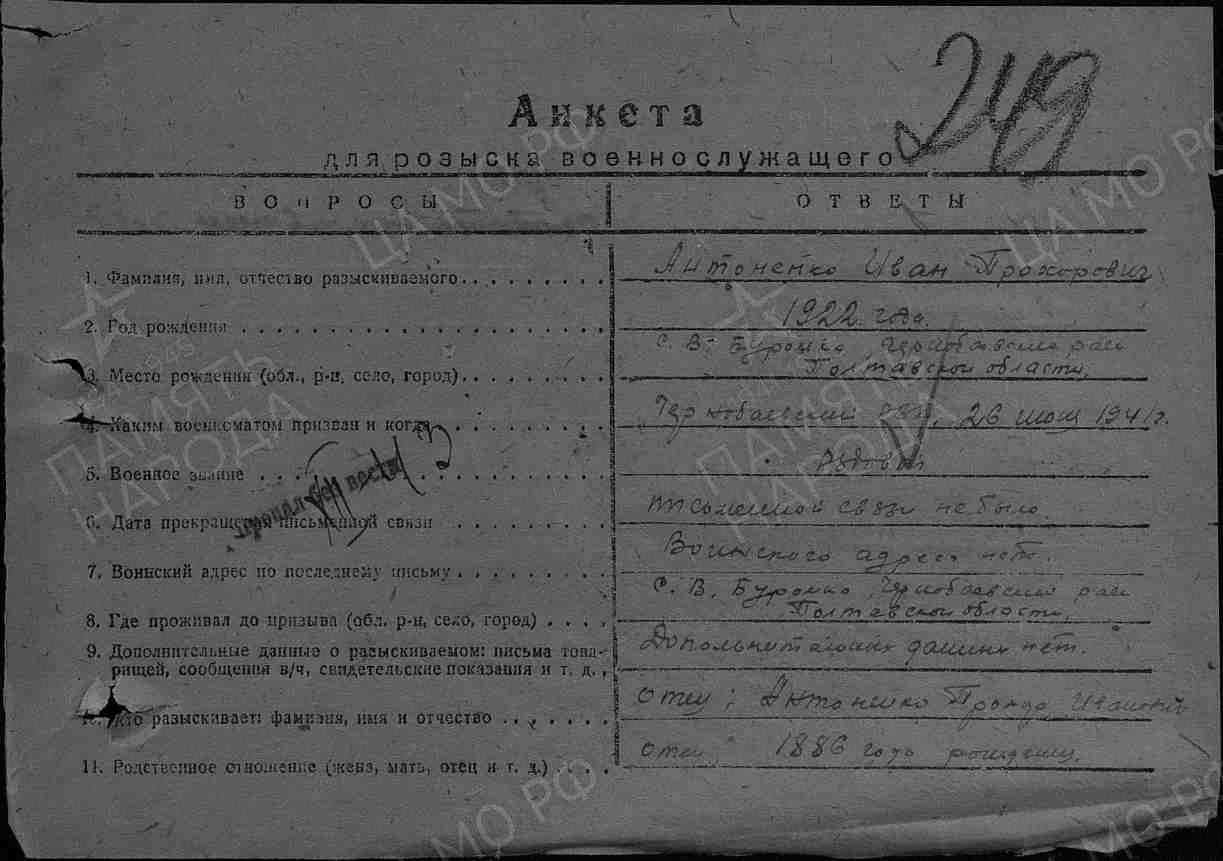 249
Анкета
для розыска военнослужащего
ВОПРОСЫ
ОТВЕТЫ
1. Фамилия, имя, отчество разыскиваемого
Антоненко Иван Прохорович
2. Год рождения
1922 года.
3. Место рождения (обл., р-н, село, город)
с. В. Буромка, Чернобаевский рай
Полтавской области,
4. Каким военкоматом призван и когда
Чернобаевский 26 1941 г.
5. Военное звание
Рядовой
пропал без вести
6. Дата прекращения письменной связи
письменной связи не было.
7. Воинский адрес по последнему письму
Воинского адреса
8. Где проживал до призыва (обл. р-н, село, город)
С. В. Буромка, Чернобаевский рай
Полтавской области,
9. Дополнительные данные о разыскиваемом: письма това-
рищей, сообщения в/ч, свидетельские показания и т. д.,
данных нет.
10. Кто разыскивает: фамилия, имя и отчество
отец: Антоненко
11. Родственное отношение (жена, мать, отец и т. д.)
отец 1886 года рождения.
ЦА МО РФ
ПАМЯТЬ НАРОДА
1941-1945